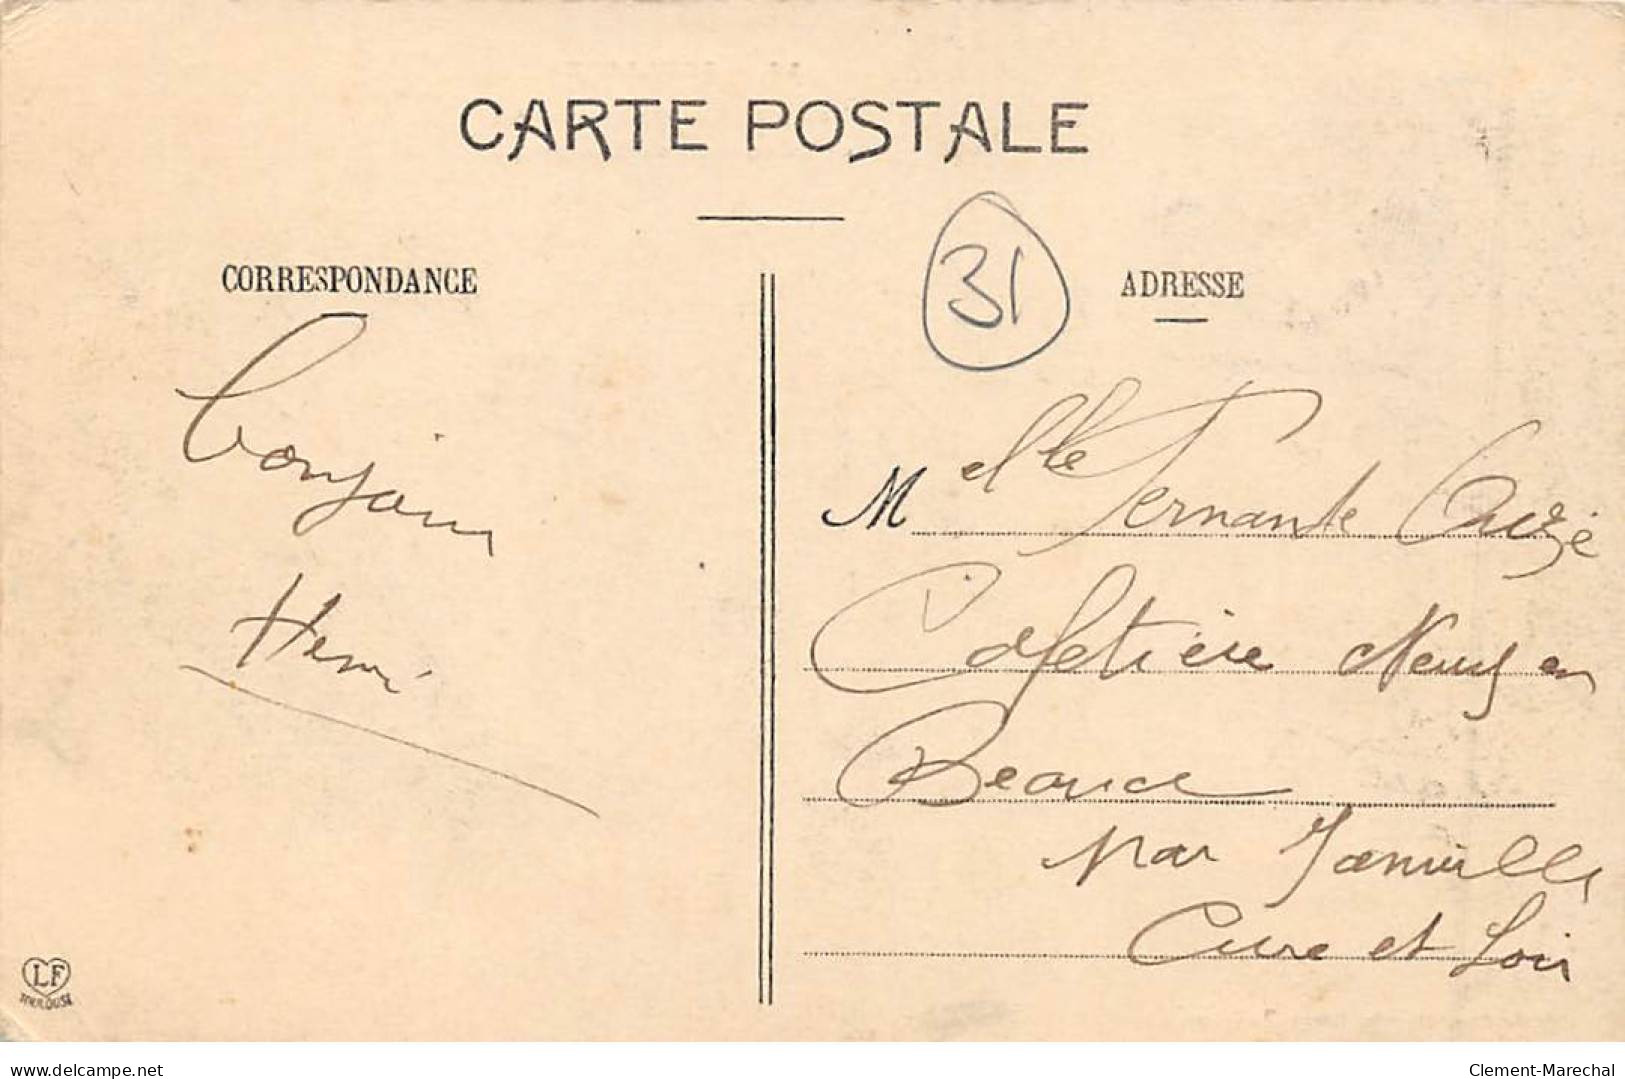 CARTE POSTALE
CORRESPONDANCE
31
ADRESSE
bonjour
Henri
M elle Fernande
Cafetière Neuvy en
Beauce
par Janville
Eure et Loir
LF
TOULOUSE
delcampe.net
Clement-Marechal